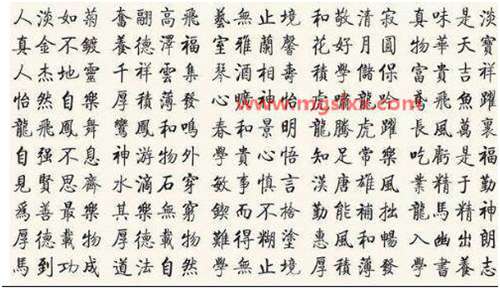 人淡如菊 奮翮高飛 藝無止境 和敬清寂 真味是淡
真金不鍍 養德澤福 室雅蘭馨 花好月圓 物華天寶
人杰地靈 千祥雲集 琴酒相壽 積學儲 富貴吉祥
怡然自樂 厚積薄發 心曠神怡 虎龍 鳶飛魚躍
龍飛鳳舞 鸞鳳和鳴 春和景明 龍騰虎躍 長風萬裏
自强不息 神游物外 學貴心悟 知足常樂 吃虧是福
見賢思齊 水滴石穿 敏事慎言 漢唐雄風 業精于勤
爲善最樂 其樂無窮 鍥而不捨 勤能補拙 龍馬精神
厚德載物 厚德載物 難得糊塗 惠風和暢 入幽出朗
馬到功成 道法自然 學無止境 厚積薄發 學書養志